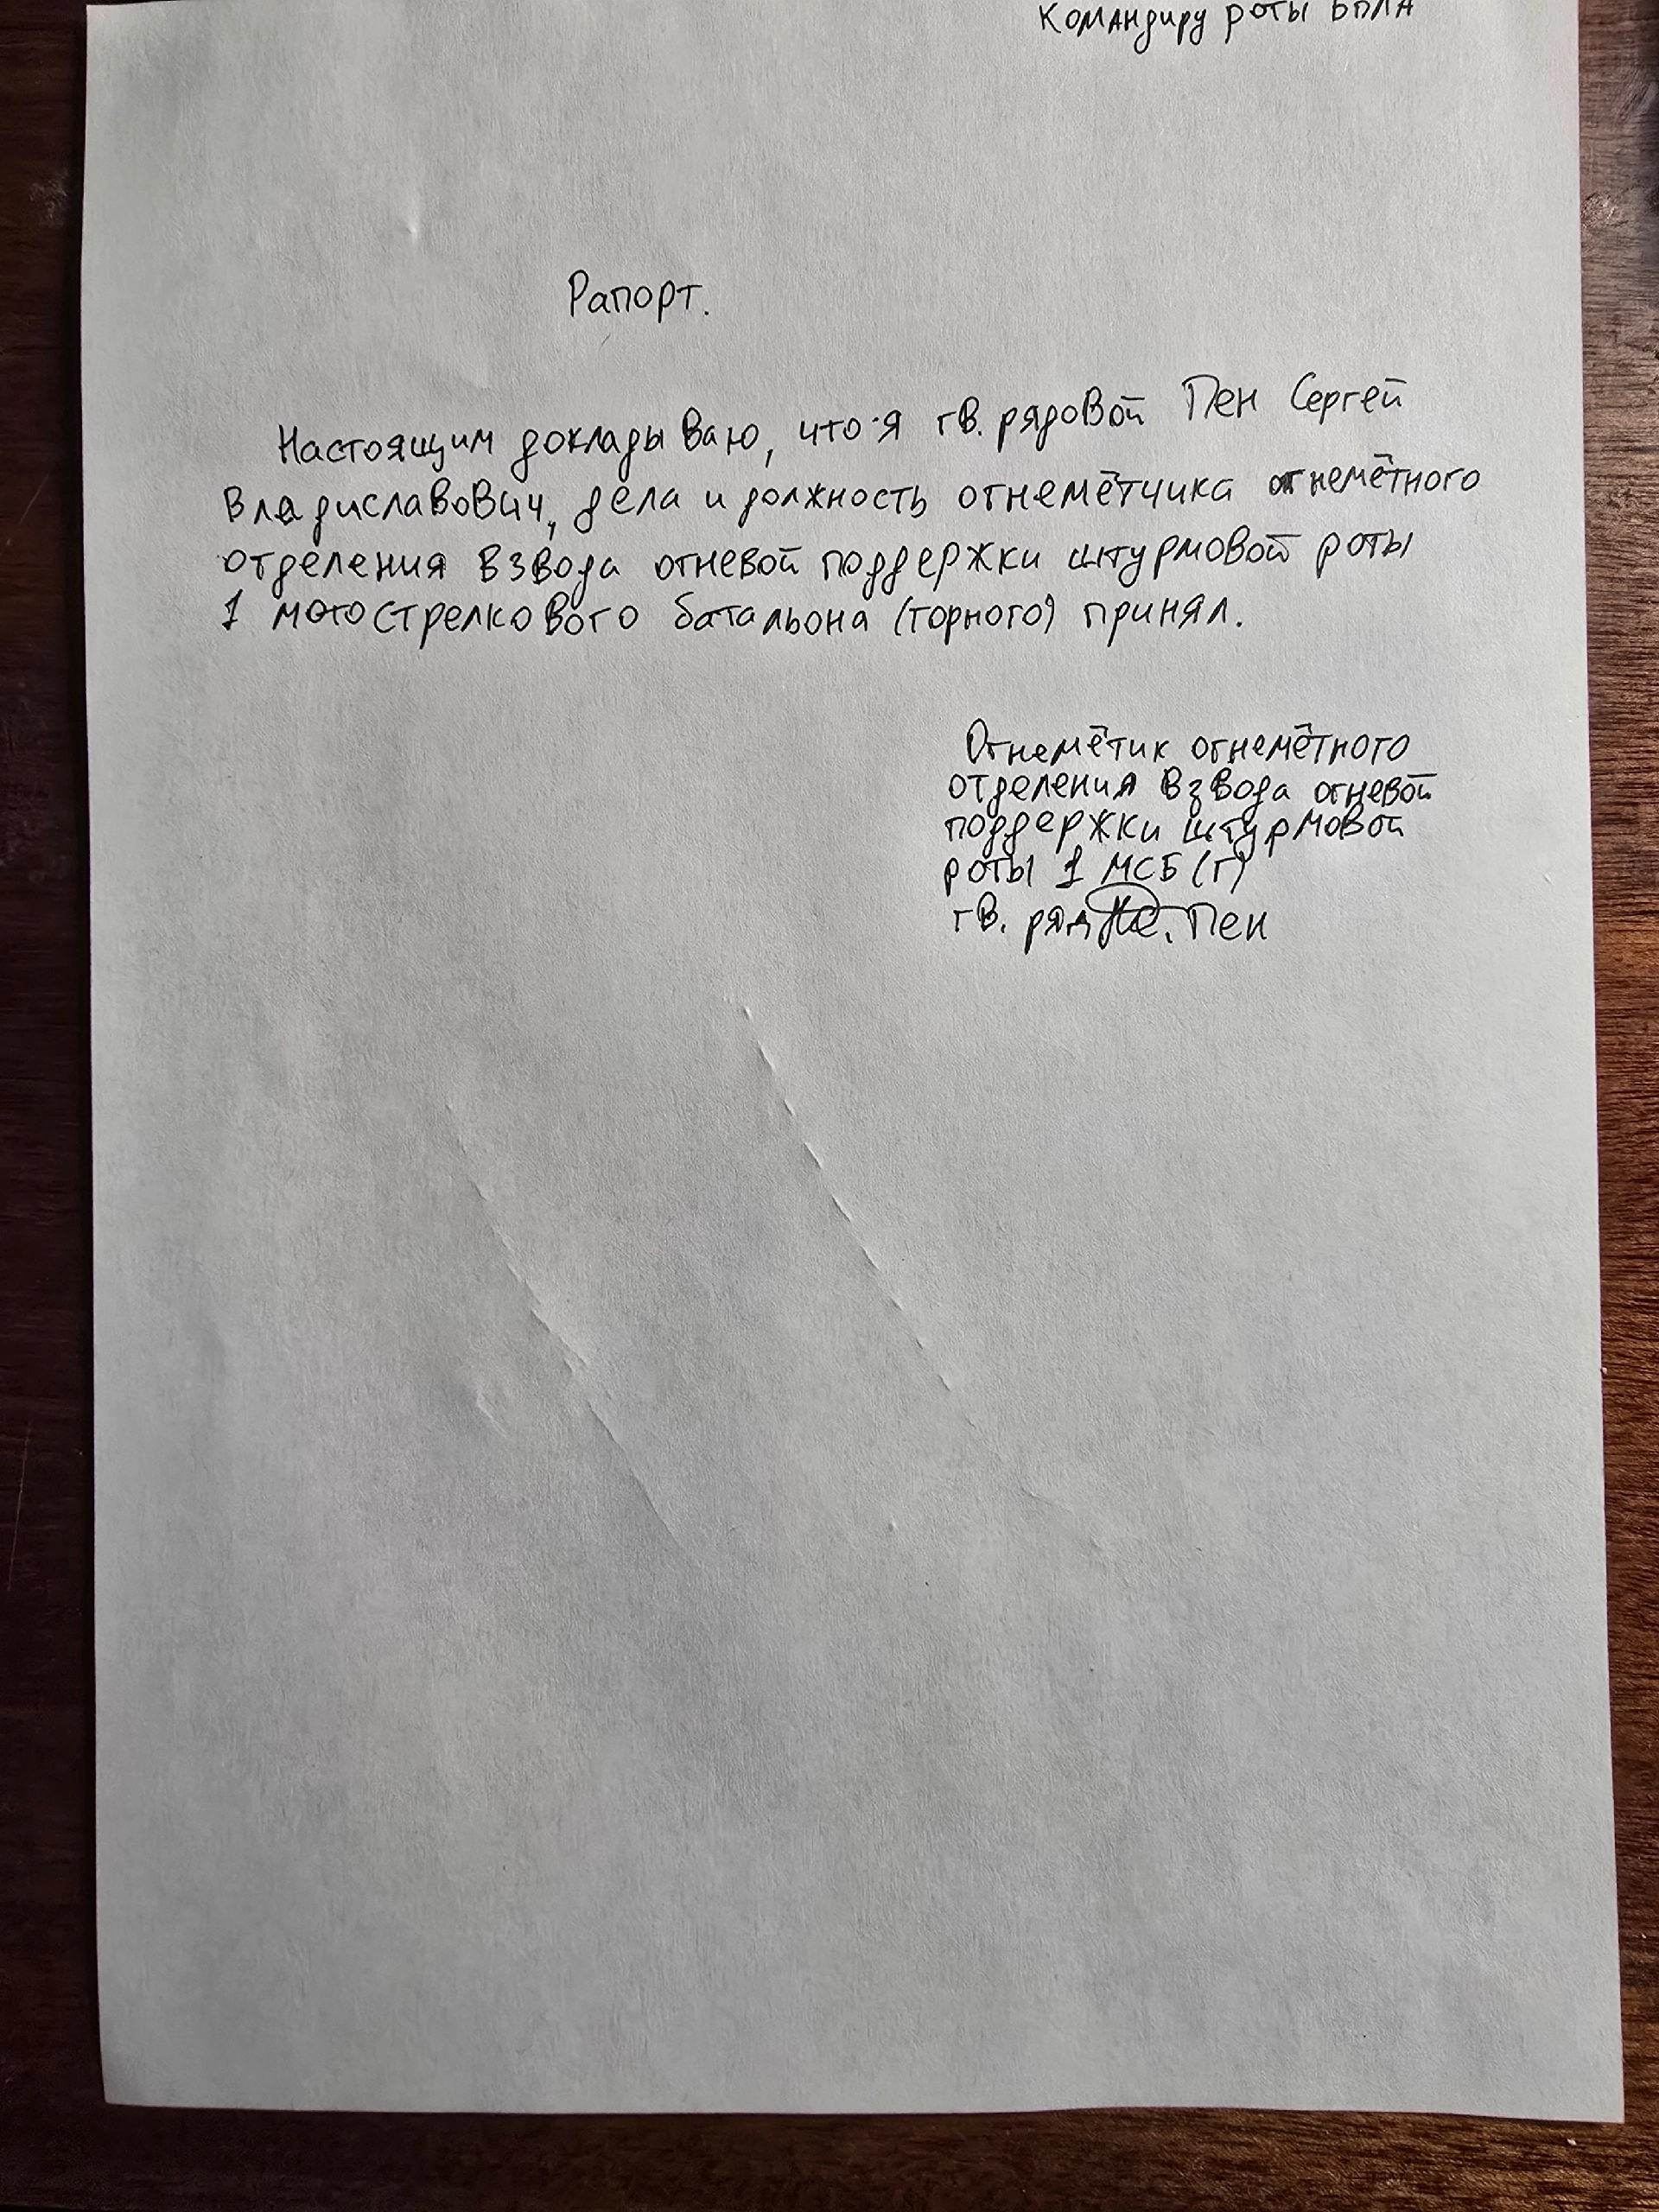 Командиру роты БПЛА
Рапорт.
Настоящим докладываю, что я гв. рядовой Пен Сергей
Владиславович, дела и должность огнемётчика огнемётного
отделения взвода огневой поддержки штурмовой роты
1 мотострелкового батальона (горного) принял.
Огнемётик огнемётного
отделения взвода огневой
поддержки штурмовой
роты 1 МСБ (г)
гв. ряд. Пен